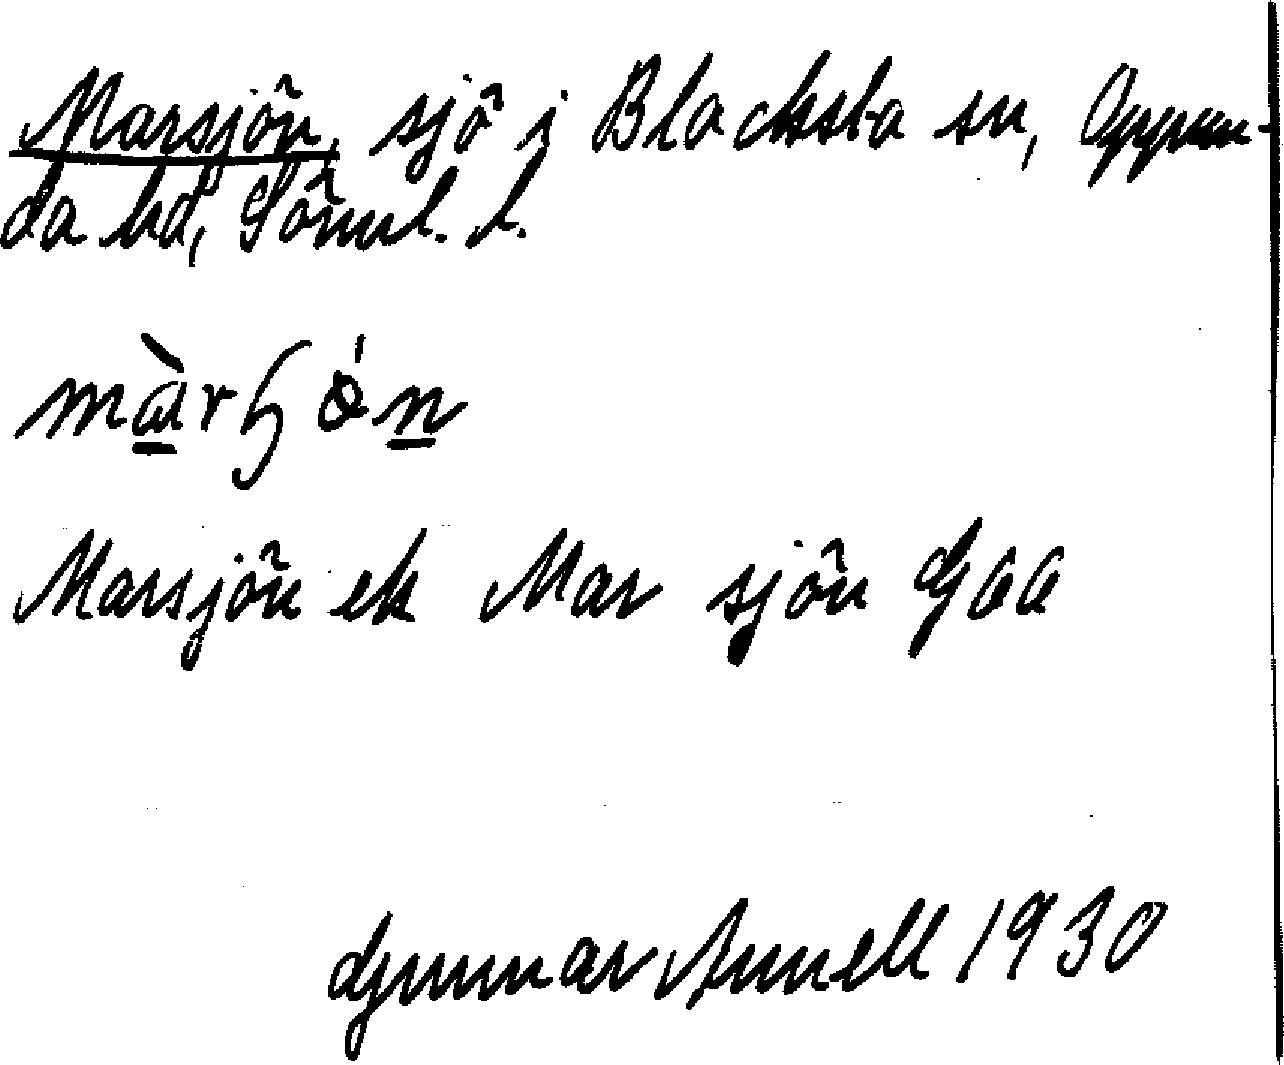 Marsjön, sjö i Blacksta sn, Oppun-
da hd, Sörml. l.
màrɧǿn
Marsjön ek Mar sjön Gaa
Gunnar Annell 1930